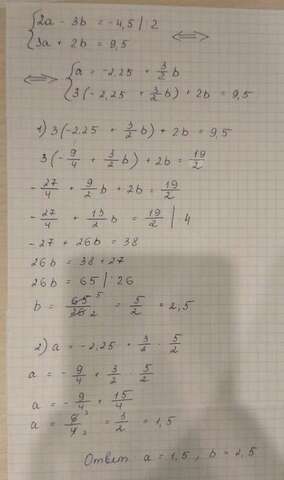 {2a - 3b = -4,5 | : 2
{3a + 2b = 9,5 <=>
<=> {a = -2,25 + 3/2 b
{3(-2,25 + 3/2 b) + 2b = 9,5
1) 3(-2,25 + 3/2 b) + 2b = 9,5
3(-9/4 + 3/2 b) + 2b = 19/2
-27/4 + 9/2 b + 2b = 19/2
-27/4 + 13/2 b = 19/2 | 4
-27 + 26b = 38
26b = 38 + 27
26b = 65 | : 26
b = 65 5/26 2 = 5/2 = 2,5
2) a = -2,25 + 3/2 · 5/2
a = -9/4 + 3/2 · 5/2
a = -9/4 + 15/4
a = 6 3/4 2 = 3/2 = 1,5
Ответ a = 1,5, b = 2,5